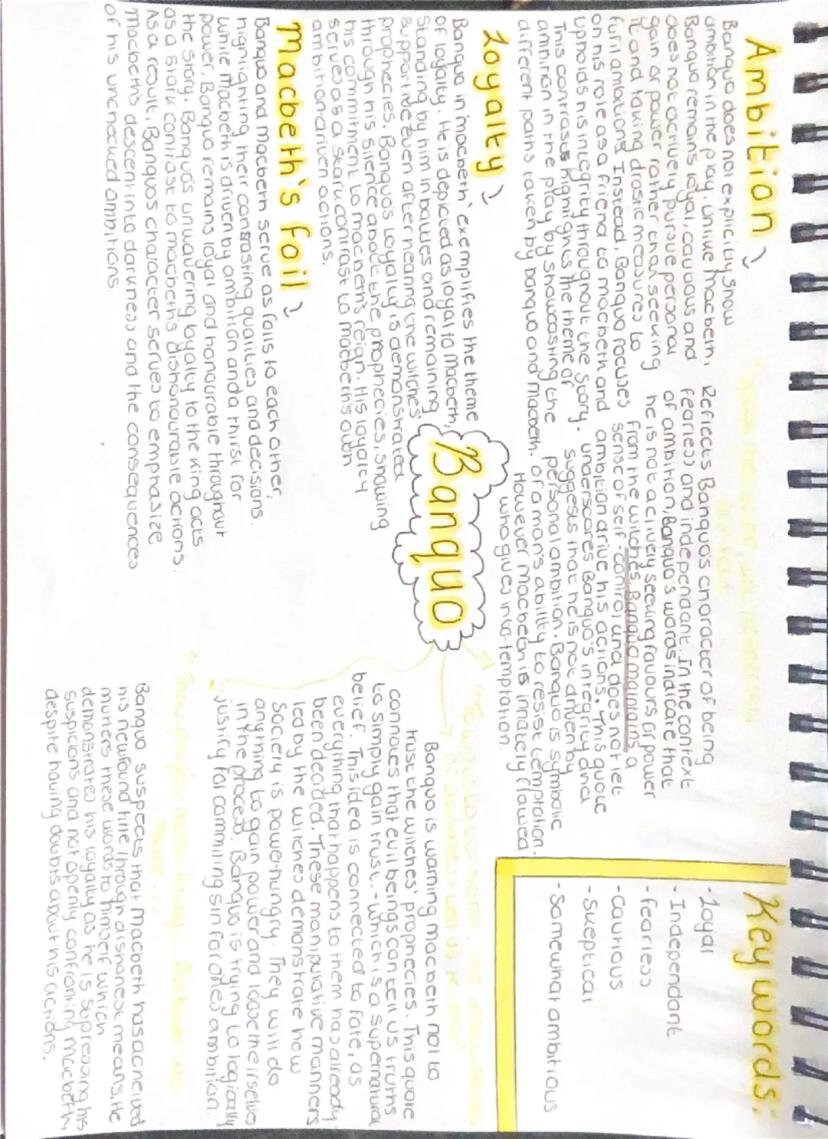 Ambition
Banquo does not explicitly show
ambition in the play. Unlike Macbeth,
Banquo remains loyal, cautious and
does not actively pursue personal
gain or power rather than seeking
it and taking drastic measures to
fulfil ambitions. Instead, Banquo focuses
on his role as a friend to macbeth and
upholds his integrity throughout the story.
This contrasts highlights the theme of
ambition in the play by showcasting the
different paths taken by banquo and macbeth.
Loyalty
Banquo in 'macbeth' exemplifies the theme
of loyalty. He is depicted as loyal to Macbeth,
standing by him in battles and remaining
supportive even after hearing the witches
prophecies. Banquo's loyalty is demonstrated
through his silence about the prophecies, showing
his commitment to macbeth's reign. His loyalty
serves as a stark contrast to macbeth's own
ambition driven actions.
Macbeth's foil
Banquo and macbeth serve as foils to each other,
highlighting their contrasting qualities and decisions.
While Macbeth is driven by ambition and a thirst for
power, Banquo remains loyal and honourable throughout
the story. Banquo's unwavering loyalty to the king acts
as a stark contrast to macbeths dishonourable actions.
As a result, Banquo's character serves to emphasize
Macbeth's descent into darkness and the consequences
of his unchecked ambitions.
Banquo
Reflects Banquo's character of being
fearless and independant. In the context
of ambition, Banquo's words indicate that
he is not actively seeking favours or power
from the witches. Banquo maintains a
sense of self-control and does not let
ambition drive his actions. This quote
underscores Banquo's integrity and
suggests that he is not driven by
personal ambition. Banquo is symbolic
of a man's ability to resist temptation.
However macbeth is innately flawed
who gives into temptation.
Key words:
- Loyal
- Independant
- fearless
- Cautious
- Skeptical
- Somewhat ambitious
Banquo is warning macbeth not to
trust the witches' prophecies. This quote
connotes that evil beings can tell us truths
to simply gain trust. - Which is a supernatural
belief. This idea is connected to fate, as
everything that happens to them has already
been decided. These manipulative manners
led by the witches demonstrate how
society is power-hungry. They will do
anything to gain power and loose themselves
in the process. Banquo is trying to logically
justify for commiting sin for ones ambition.
Banquo suspects that Macbeth has achieved
his newfound title through dishonest means. He
mutters these words to himself which
demonstrates his loyalty as he is supressing his
suspicions and not openly confronting macbeth,
despite having doubts about his actions.